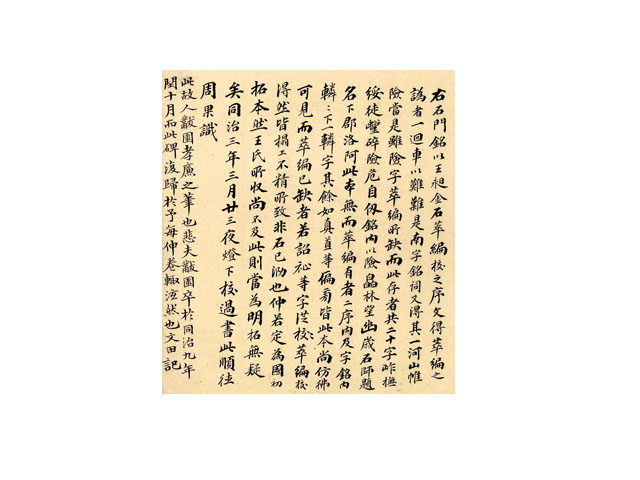 右石門銘以王昶金石萃編校之序文得萃編之
譌者一迴車以難難是南字銘詞又得其一河山惟
險當是雖險字萃編所缺而此存者共二十字岞撫
綏徒鑿碎險危自伋銘內以險晶林堂幽歲石師題
名下郡洛阿此本無而萃編有者二序內及字銘內
轔轔下一轔字其餘如真首等偏旁皆此本尚仿彿
可見而萃編已缺者若詔祉等字從校萃編校
得然皆搨工不精所致非石已泐也仲若定為國初
拓本然王氏所收尚不及此則當為明拓無疑
矣同治三年三月廿三夜燈下校過書此順德
周果識
此故人黻園孝廉之筆也悲夫黻園卒於同治九年
閏十月而此碑復歸於予每伸卷輒泫然也文田記